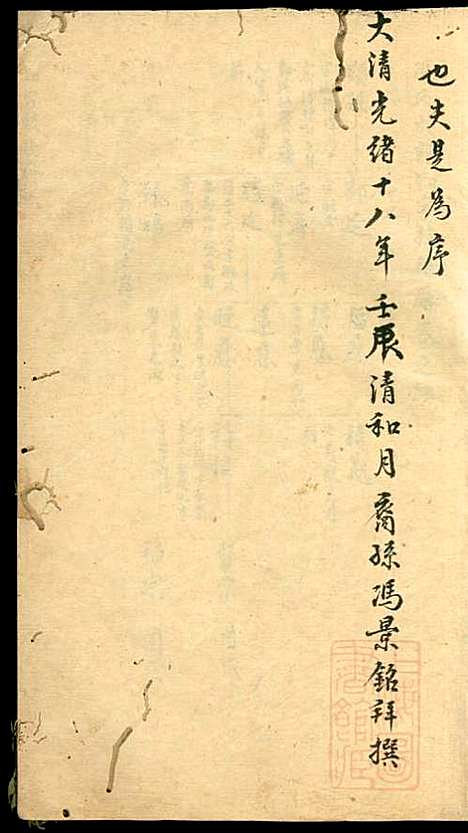 也夫是為序
大清光緒十八年壬辰清和月裔孫馮景銘拜撰